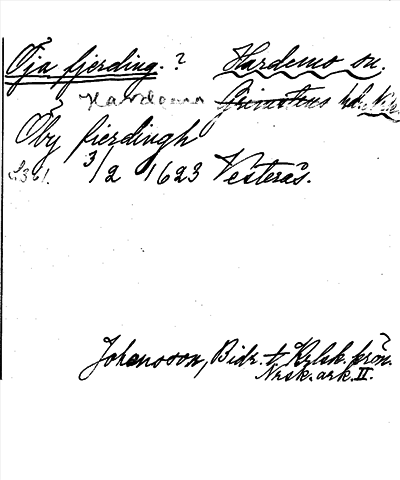 Öja fjerding. ? Hardemo sn.
Hardemo Grimstens hd.
Öby fierdingh
3/2 1623 Vesterås.
Johansson, Bidr. t. Kylsk. frön.
Nrsk. ark. II.